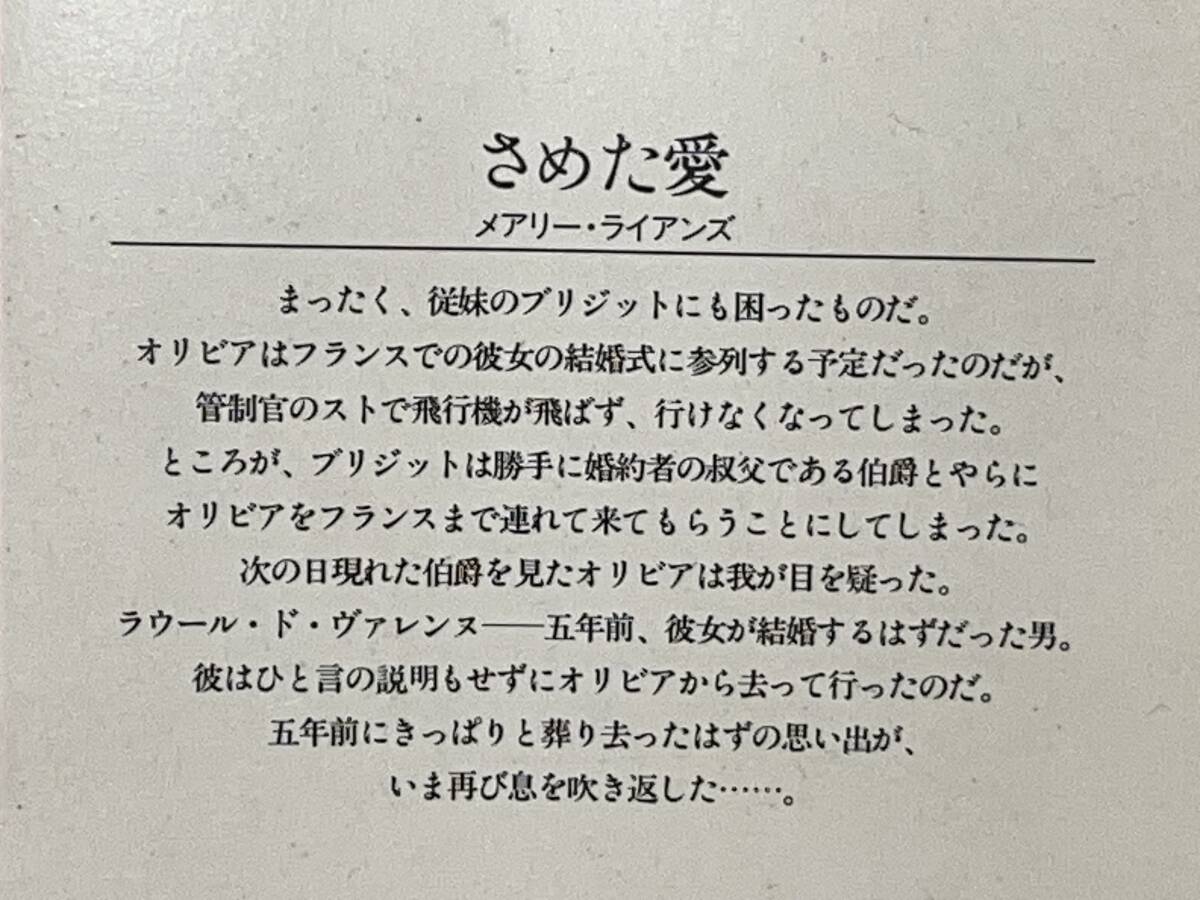 さめた愛
メアリー・ライアンズ
まったく、従妹のブリジットにも困ったものだ。
オリビアはフランスでの彼女の結婚式に参列する予定だったのだが、
管制官のストで飛行機が飛ばず、行けなくなってしまった。
ところが、ブリジットは勝手に婚約者の叔父である伯爵とやらに
オリビアをフランスまで連れて来てもらうことにしてしまった。
次の日現れた伯爵を見たオリビアは我が目を疑った。
ラウール・ド・ヴァレンヌ——五年前、彼女が結婚するはずだった男。
彼はひと言の説明もせずにオリビアから去って行ったのだ。
五年前にきっぱりと葬り去ったはずの思い出が、
いま再び息を吹き返した……。